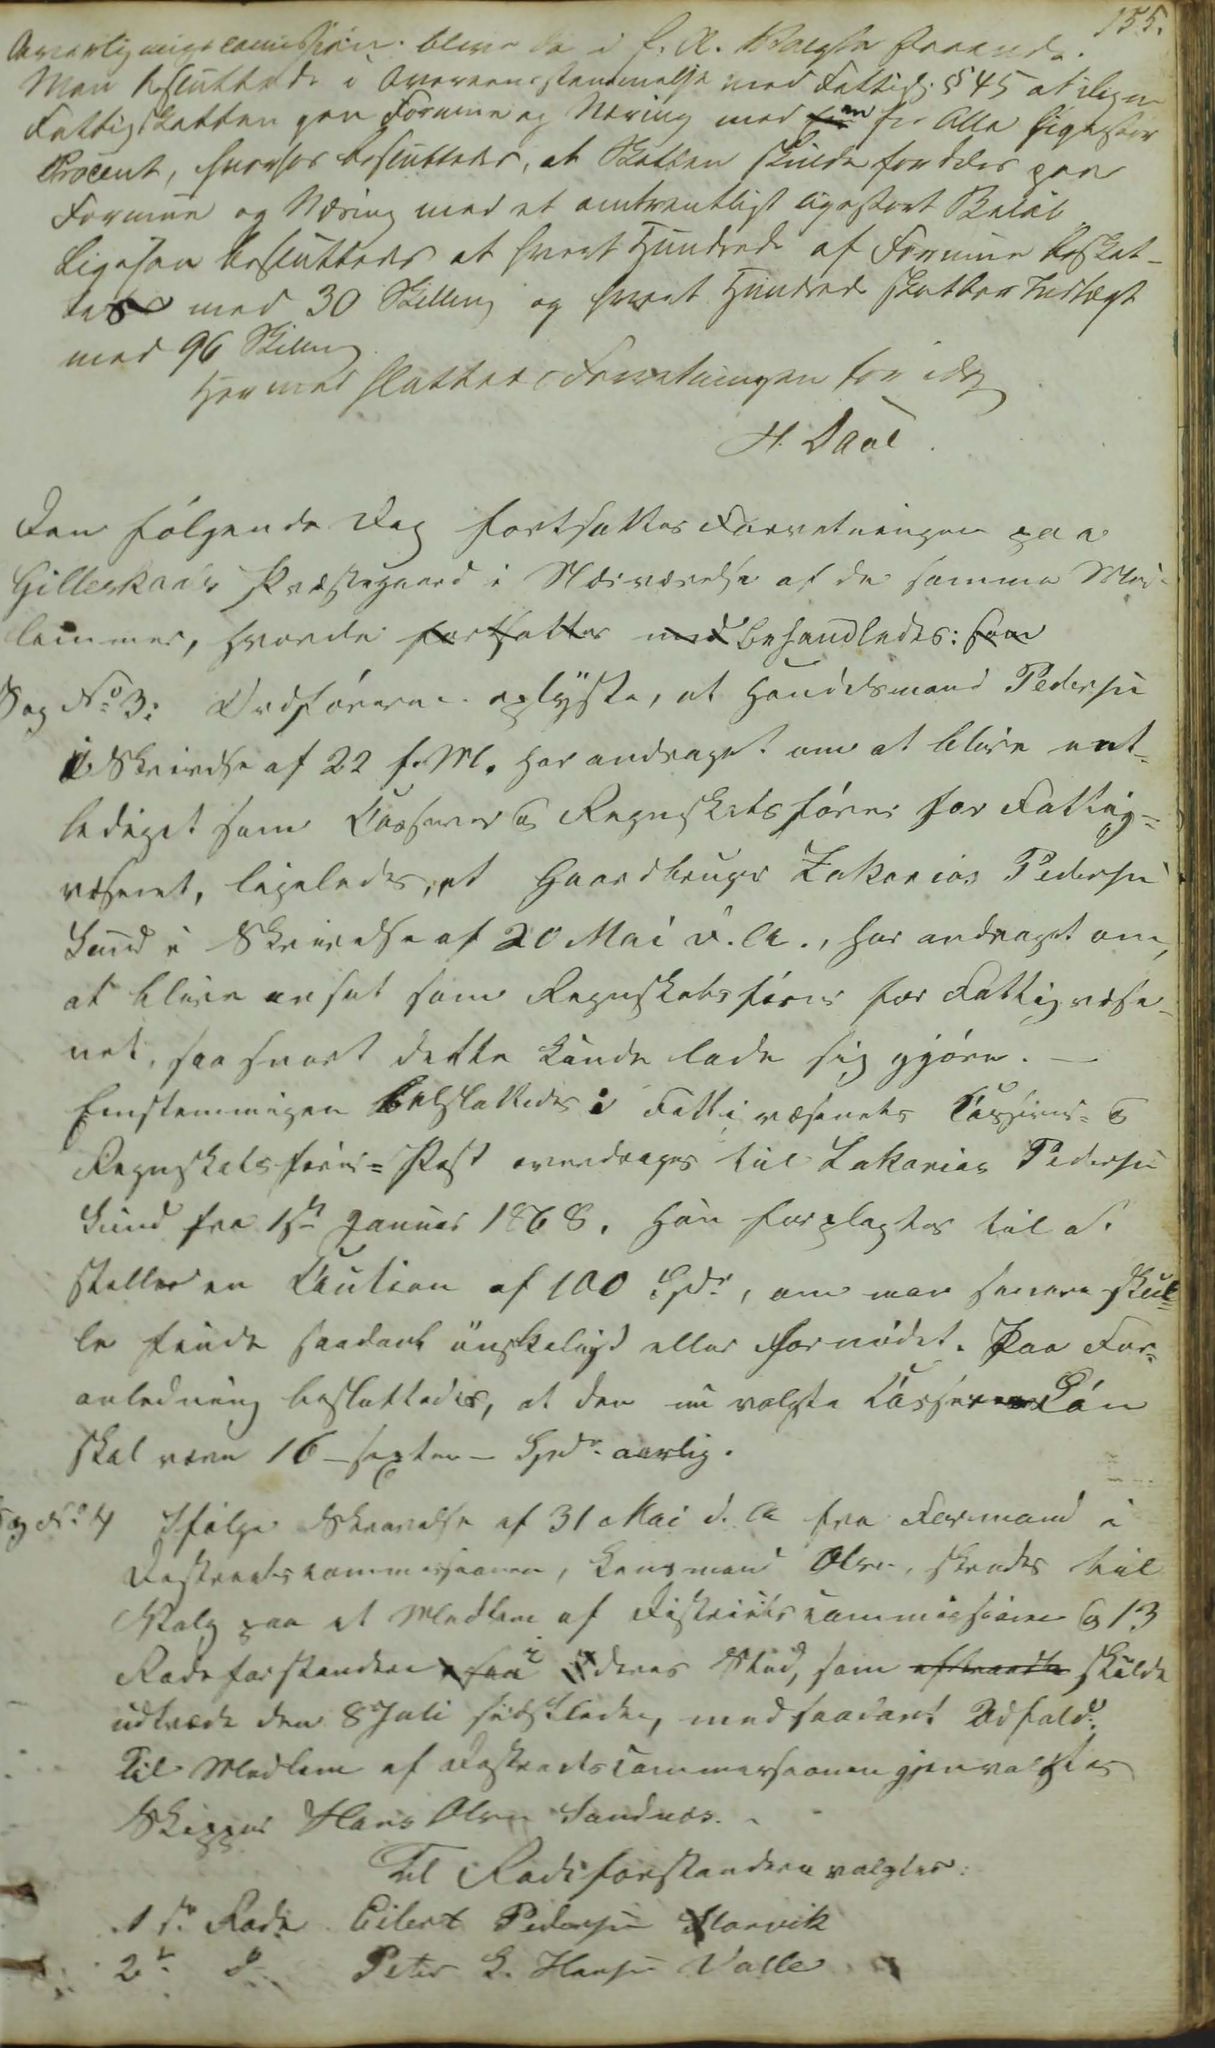 155.
bliver da i f. A.
Man besluttede i Overeensstemmelse med Fattigl. § 45 at ligne
Fattigskatten paa Formue og Næring med en for Alle ligestor
Procent, hvorfor besluttedes, at Skatten skulde fordeles paa
Formue og Næring med et omtrentligt ligestort Beløb
Ligesom besluttedes at hvert Hundrede af Formue beskat-
tes med 30 Skilling og hvert Hundrede skatbar Indtægt
med 96 Skilling
Hermed sluttedes Forretningen for idag
H. Daae.
Den følgende Dag fortsattes Forretningen paa
Gilleskaals Præstegaard i Nærværelse af de samme Med-
lemmer, hvorda fortsattes med behandledes: som
Sag No 3: Ordføreren oplyste, at Handelsmand Pedersen
i Skrivelse af 22 f. M. har andraget om at blive ent-
lediget som Casserer og Regnskabsfører for Fattig=
væsenet, ligeledes, at Gaardbruger Zakarias Pedersen
Sund i Skrivelse af 20 Mai d. A., har andraget om,
at blive ansat som Regnskabsfører for Fattigvæse-
net, saasnart dette kunde lade sig gjøre. —
Eenstemmigen besluttedes i Fattigvæsenets Casserer- og
Regnskabsfører=Post overdrages til Zakarias Pedersen
Sund fra 1ste Januar 1868. Han forplegtes til at
stille en Caution af 100 Spdr, om man senere skul-
le finde saadant ønskeligt eller fornødent. Paa For-
anledning besluttedes, at den nu valgte Casserers Løn
skal være 16 – sexten – Spdr. aarlig.
Sag No. 4 Ifølge Skrivelse af 31 Mai d. A fra Formand i
Districtscommissionen, Lensmand Olsen, skredes til
Valg paa et Medlem af Districtscommissionen og 13
Rodeforstandere i deres Sted, som skulde
udtræde den 8 Juli sidstleden, med saadant Udfald:
Til Medlem af Districtscommissionen gjenvalgtes
Skipper Hans Olsen Sandnes.
Til Rodeforstandere valgtes:
1ste Rode Eilert Pedersen Storvik
2den do Peter L. Hansen Valle